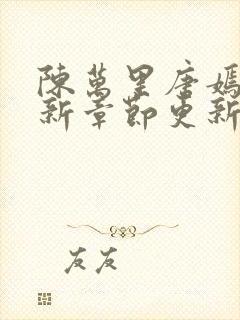 陳萬里唐嫣
新章節更新
友友